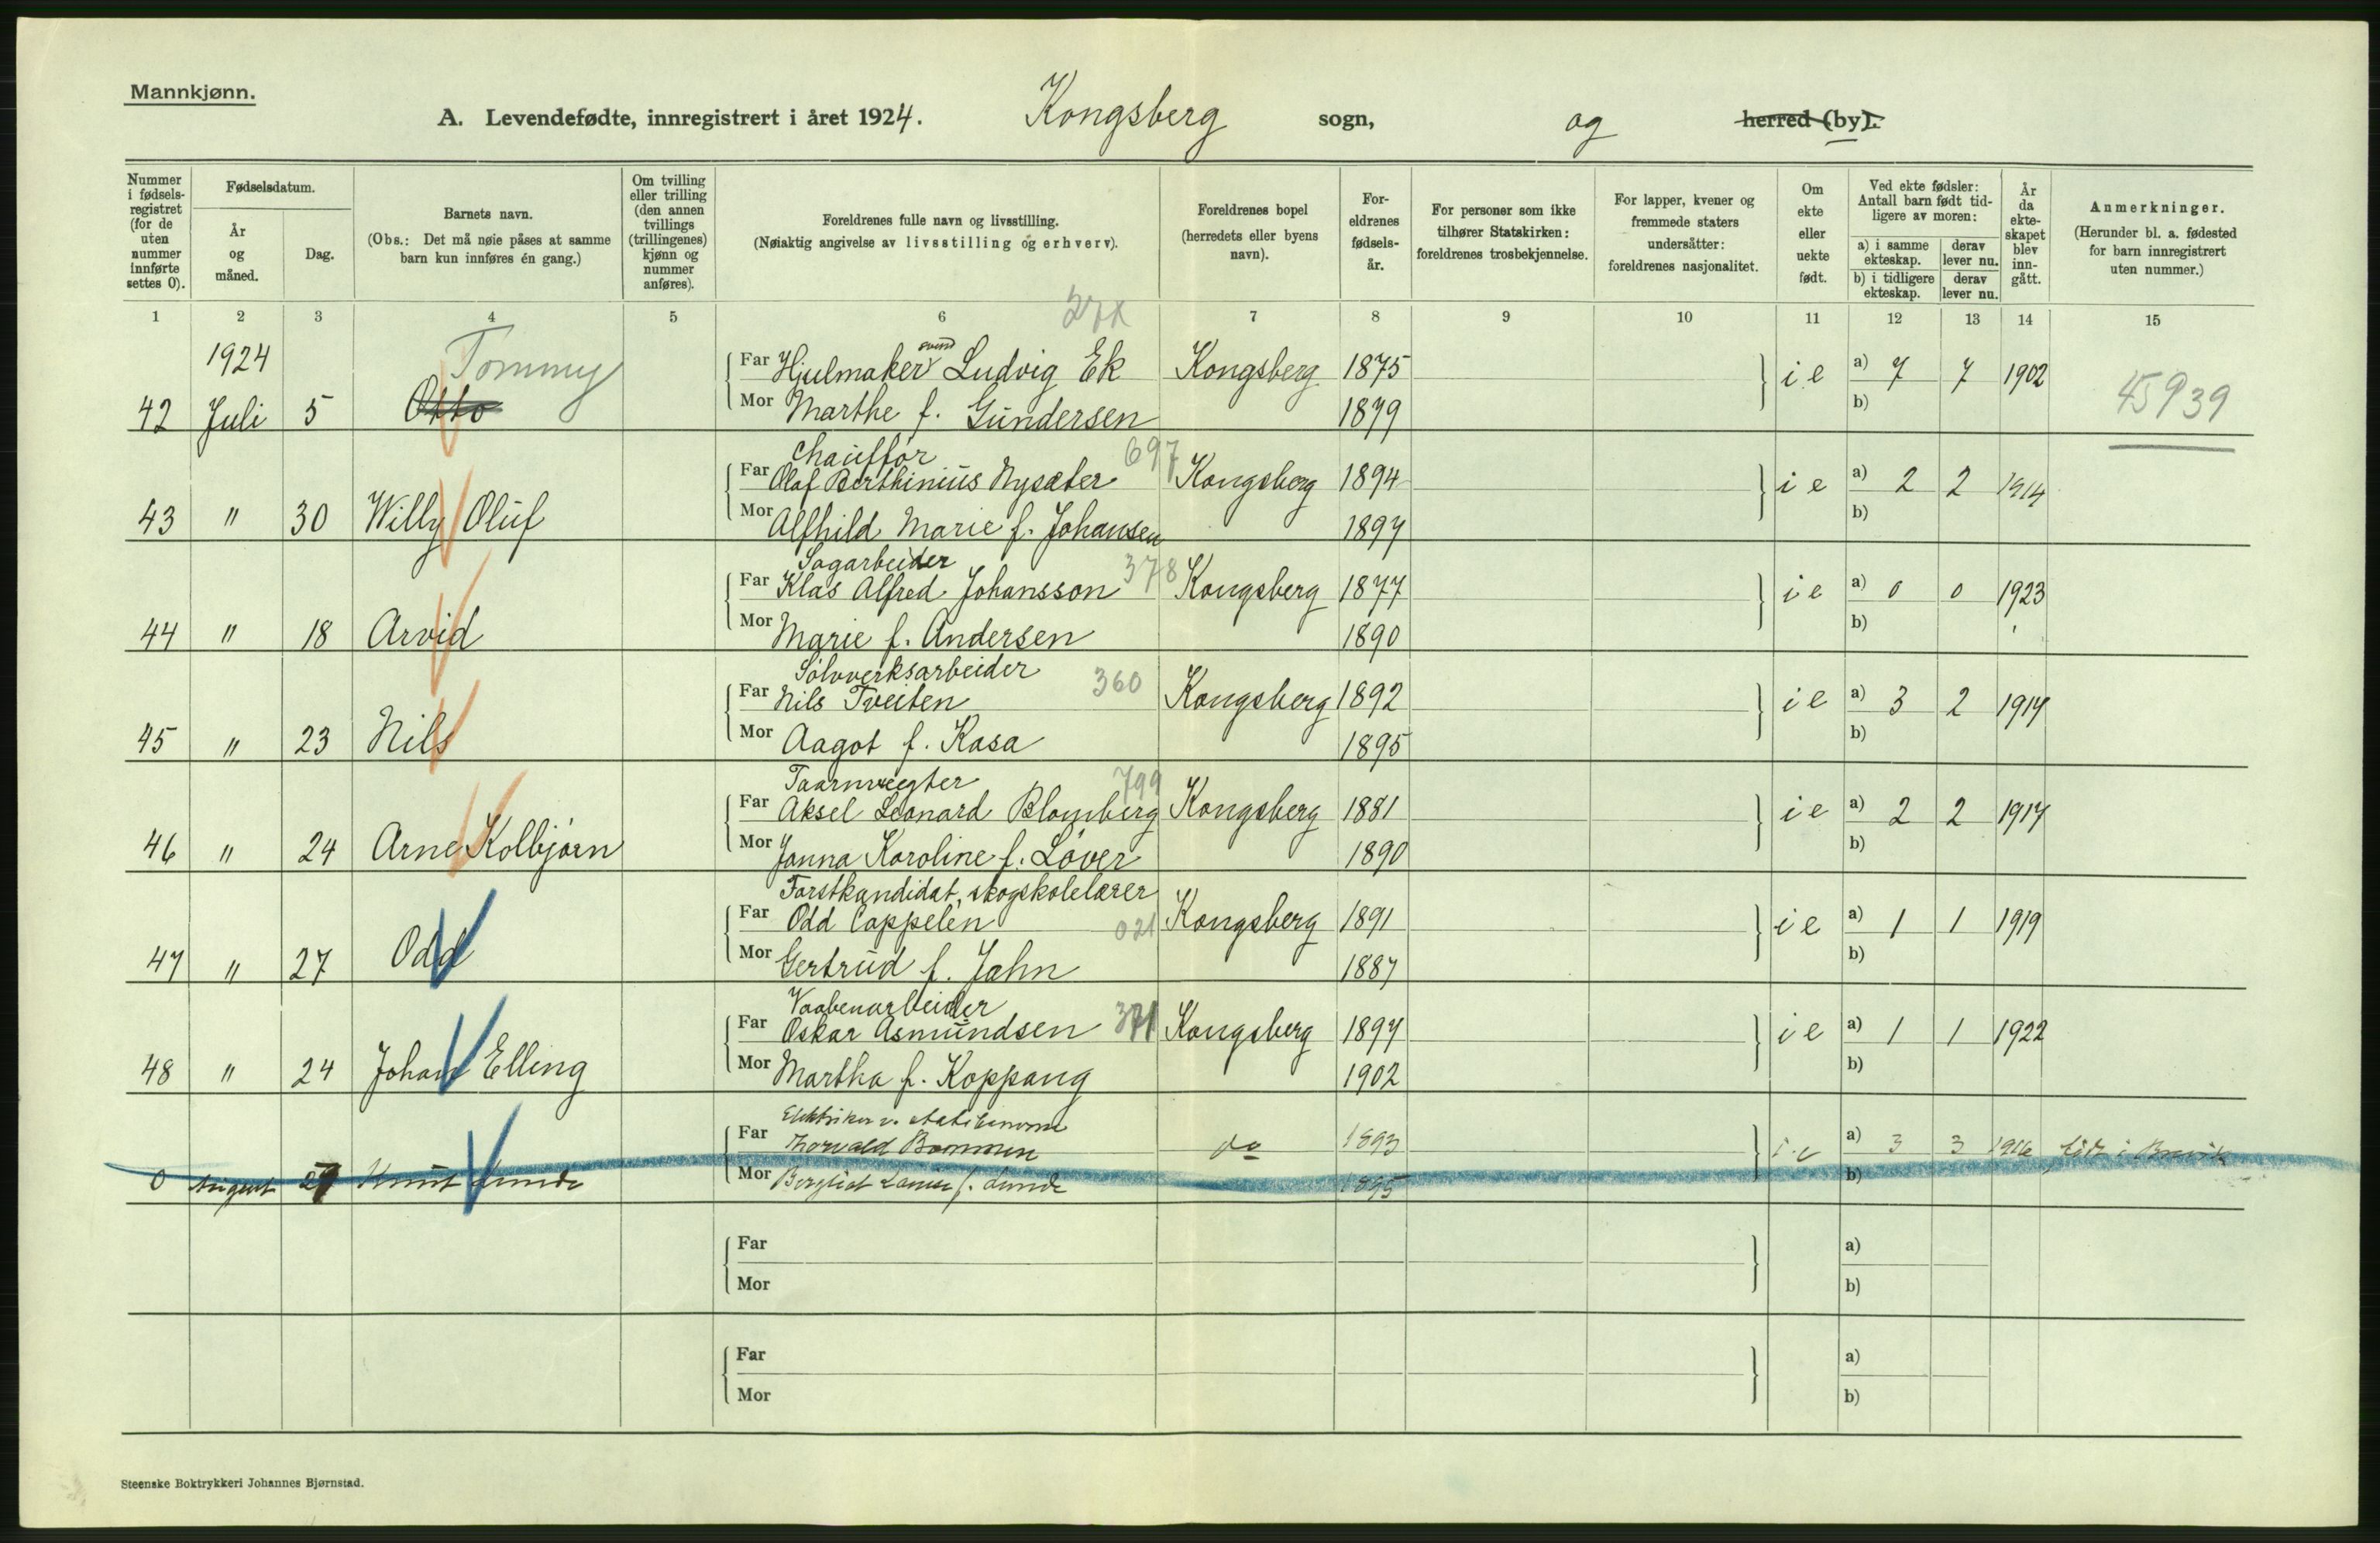 Mannkjønn.
A. Levendefødte, innregistrert i året 1924. Kongsberg sogn, og herred (by).
Nummer i fødselsregistret (for de uten nummer innførte settes 0).
Fødselsdatum.
År og måned.
Dag.
Barnets navn.
(Obs.: Det må nøie påses at samme barn kun innføres én gang.)
Om tvilling eller trilling (den annen tvillings (trillingenes) kjønn og nummer anføres).
Foreldrenes fulle navn og livsstilling.
(Nøiaktig angivelse av livsstilling og erhverv).
Foreldrenes bopel (herredets eller byens navn).
Foreldrenes fødselsår.
For personer som ikke tilhører Statskirken: foreldrenes trosbekjennelse.
For lapper, kvener og fremmede staters undersåtter: foreldrenes nasjonalitet.
Om ekte eller uekte født.
Ved ekte fødsler: Antall barn født tidligere av moren:
a) i samme ekteskap. derav lever nu.
b) i tidligere ekteskap. derav lever nu.
År da ekteskapet blev inngått.
Anmerkninger.
(Herunder bl. a. fødested for barn innregistrert uten nummer.)
1 2 3 4 5 6 7 8 9 10 11 12 13 14 15
1924 Tommy Far Hjulmakersvend Ludvig Ek Kongsberg 1875 i e a) 7 7 1902 45939
42 Juli 5 Otto Mor Marthe f. Gundersen 1879 b)
Chauffør 697
Far Olaf Berthinius Nysæter Kongsberg 1894 i e a) 2 2 1914
43 " 30 Willy Oluf Mor Alfhild Marie f. Johansen 1897 b)
Sagarbeider 378
Far Klas Alfred Johansson Kongsberg 1877 i e a) 0 0 1923
44 " 18 Arvid Mor Marie f. Andersen 1890 b)
Sølvverksarbeider 360
Far Nils Tveiten Kongsberg 1892 i e a) 3 2 1917
45 " 23 Nils Mor Aagot f. Kasa 1895 b)
Taarnvægter 799
Far Aksel Leonard Blomberg Kongsberg 1881 i e a) 2 2 1917
46 " 24 Arne Kolbjørn Mor Janna Karoline f. Løver 1890 b)
Forstkandidat, skogskolelærer
Far Odd Cappelen 021 Kongsberg 1891 i e a) 1 1 1919
47 " 27 Odd Mor Gertrud f. Jahn 1887 b)
Vaabenarbeider
Far Oskar Asmundsen 371 Kongsberg 1897 i e a) 1 1 1922
48 " 24 Johan Elling Mor Martha f. Koppang 1902 b)
Elektriker v.
Far Thorvald do 1893 i e a) 3 3 1916 født i Brevik
0 August Knut Lunde Mor Bergliot f. Lunde 1895 b)
Far a)
Mor b)
Far a)
Mor b)
Steenske Boktrykkeri Johannes Bjørnstad.